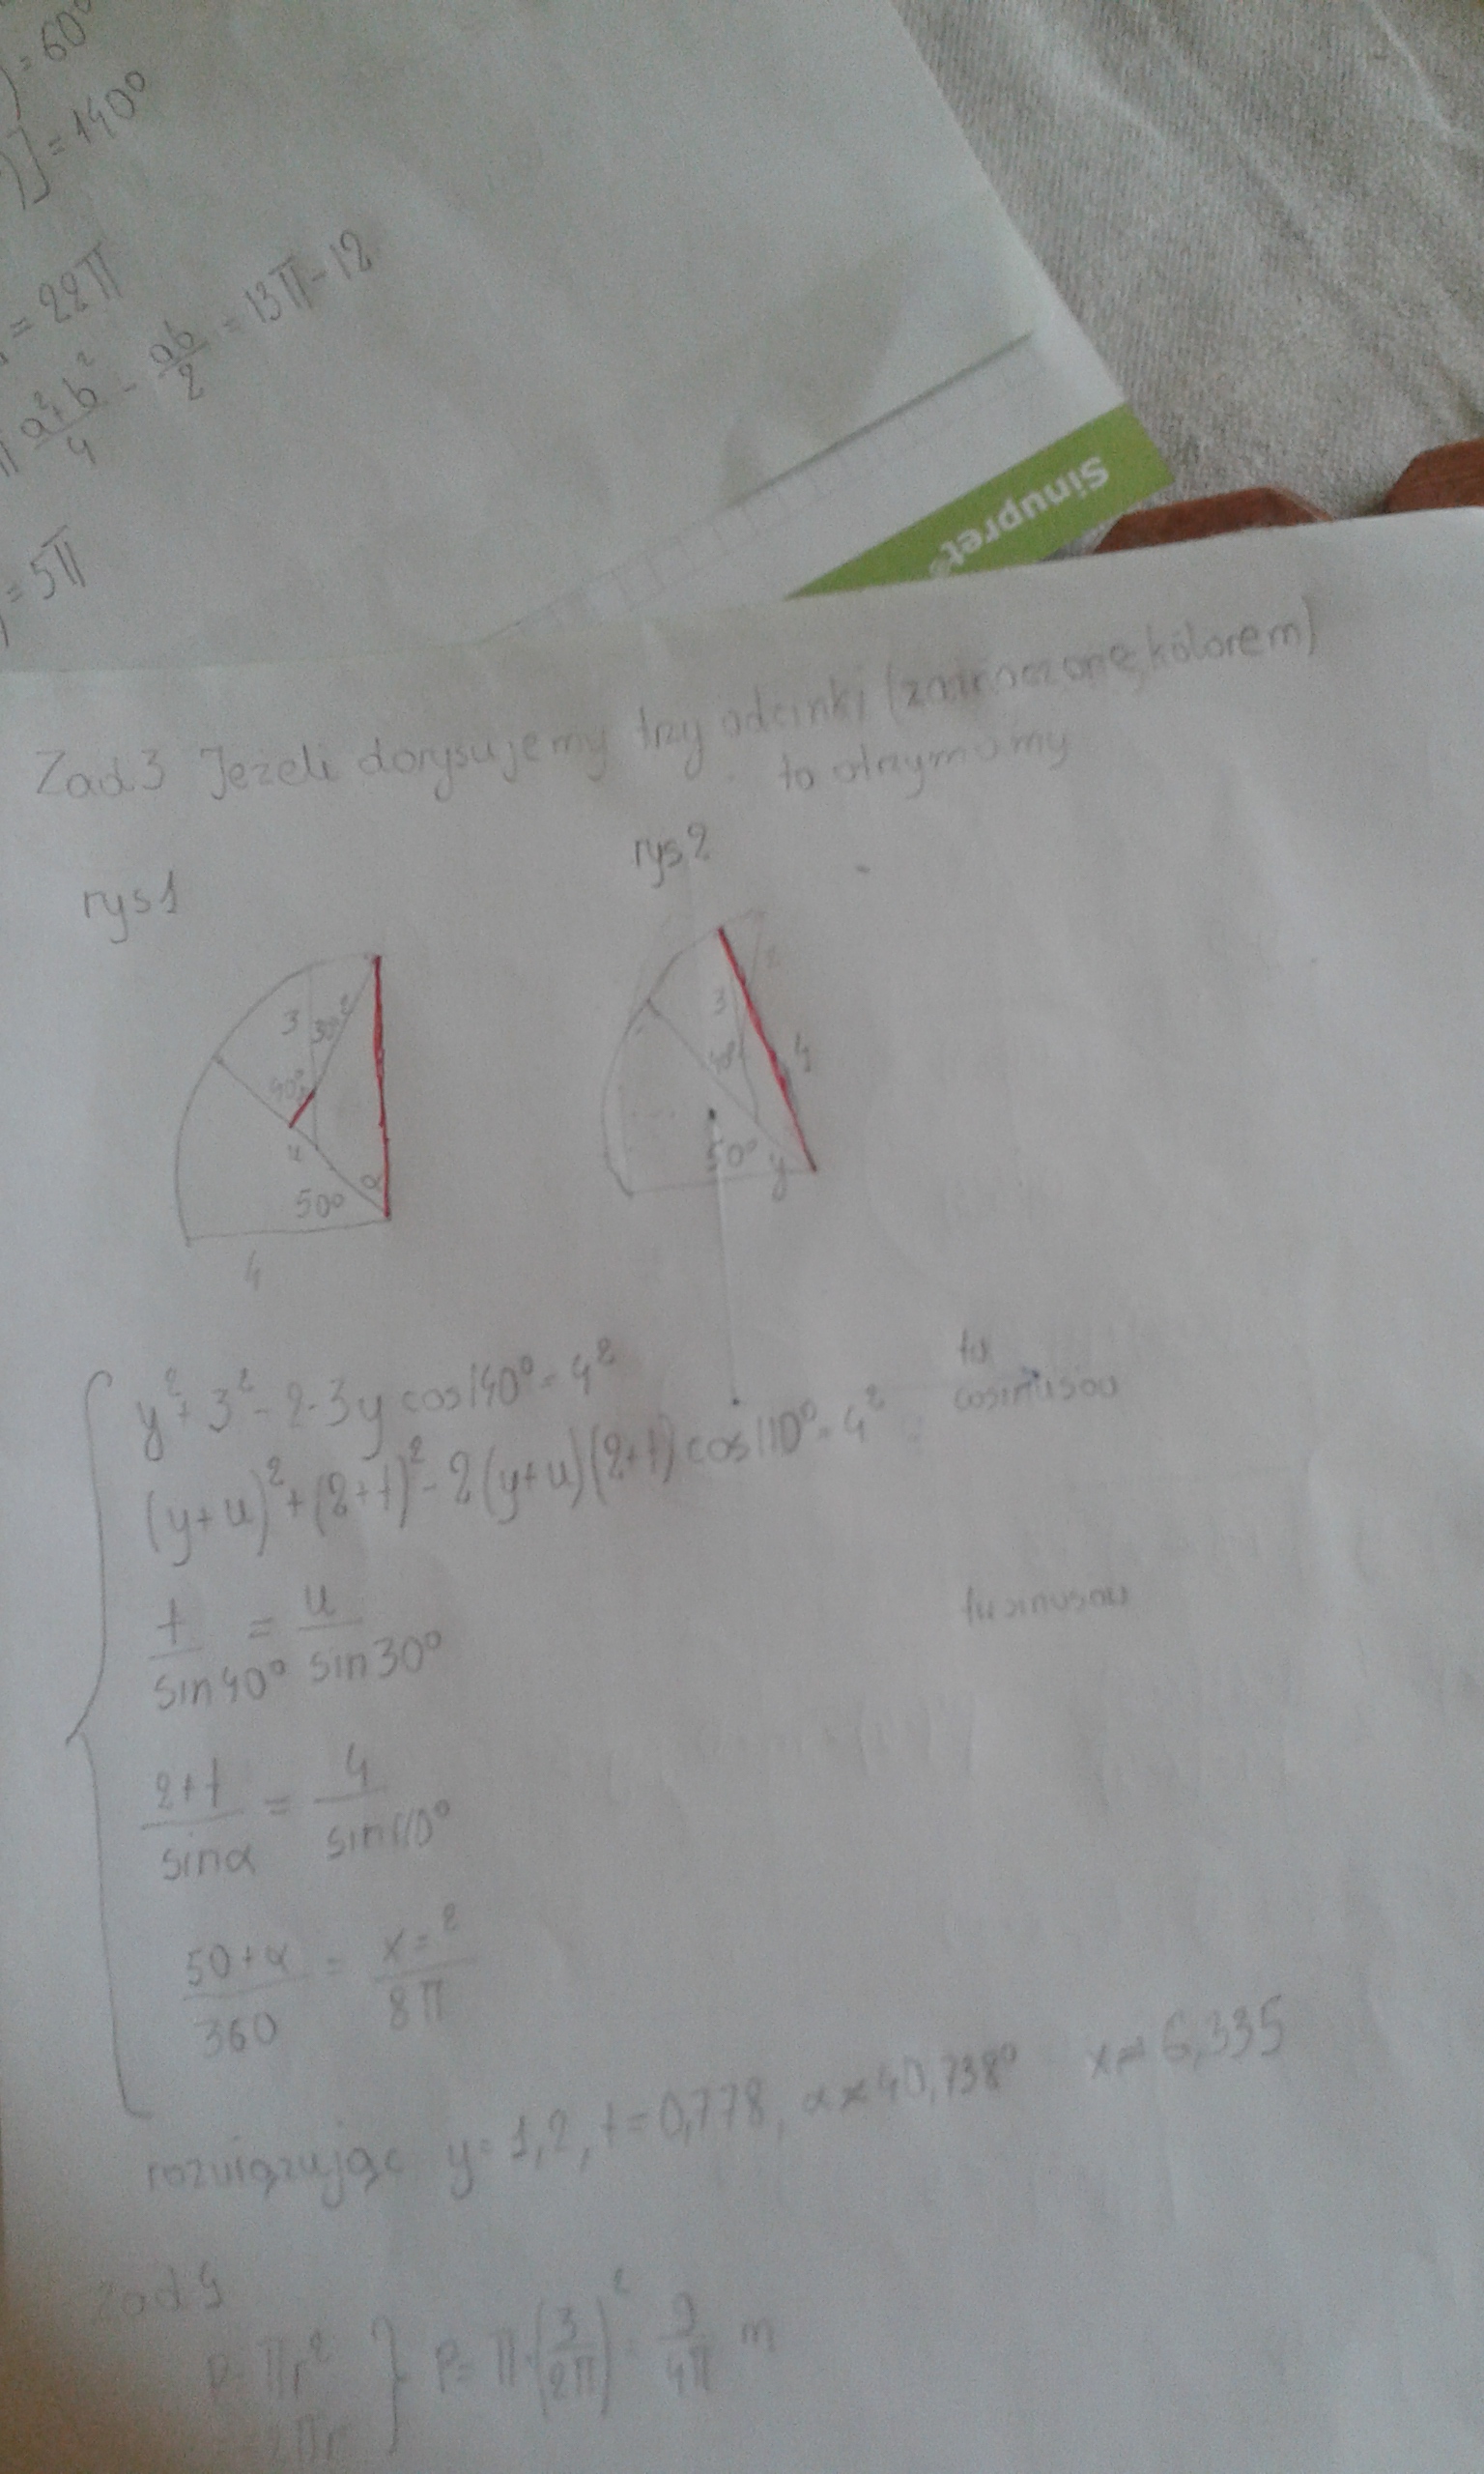 ) = 60°
)] = 140°
= 22π
π a²+b²/4 - ab/2 = 13π-12
= 5π
Sinupret
Zad.3 Jeżeli dorysujemy trzy odcinki (zaznaczone kolorem)
to otrzymamy
rys1
rys2
3
30°
2
40°
u
α
50°
4
3
40°
4
50°
y
y² + 3² - 2·3y cos140° = 4²
tw cosinusów
(y+u)² + (2+t)² - 2(y+u)(2+t) cos110° = 4²
t/sin40° = u/sin30°
tw sinusów
2+t/sinα = 4/sin110°
50+α/360 = x=?/8π
rozwiązując y=1,2, t=0,778, α≈40,738° x≈6,335
Zad 4
P=πr²
P=π·(3/2π)² = 9/4π m
=2πr